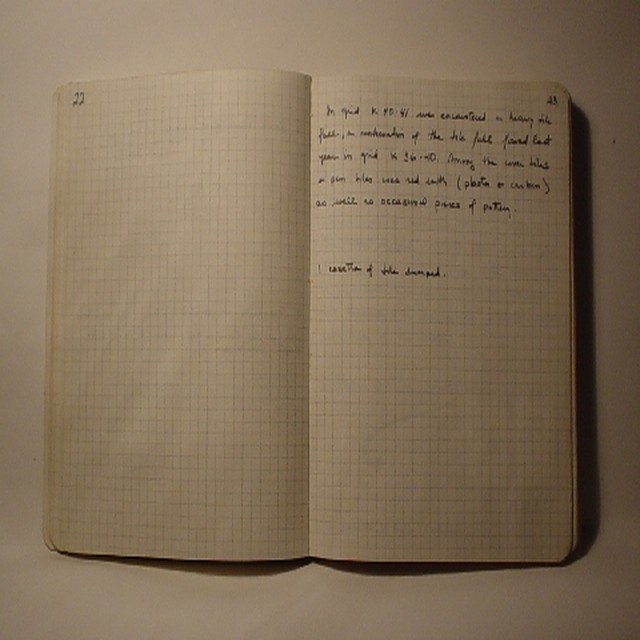 22
23
In grid K 40-41 was encountered a heavy tile
fall, a continuation of the tile fall found last
year in grid K 36-40. Among the cover tiles
+ pan tiles was red earth (plaster or carbon)
as well as occasional pieces of pottery.
1 of tile dumped.